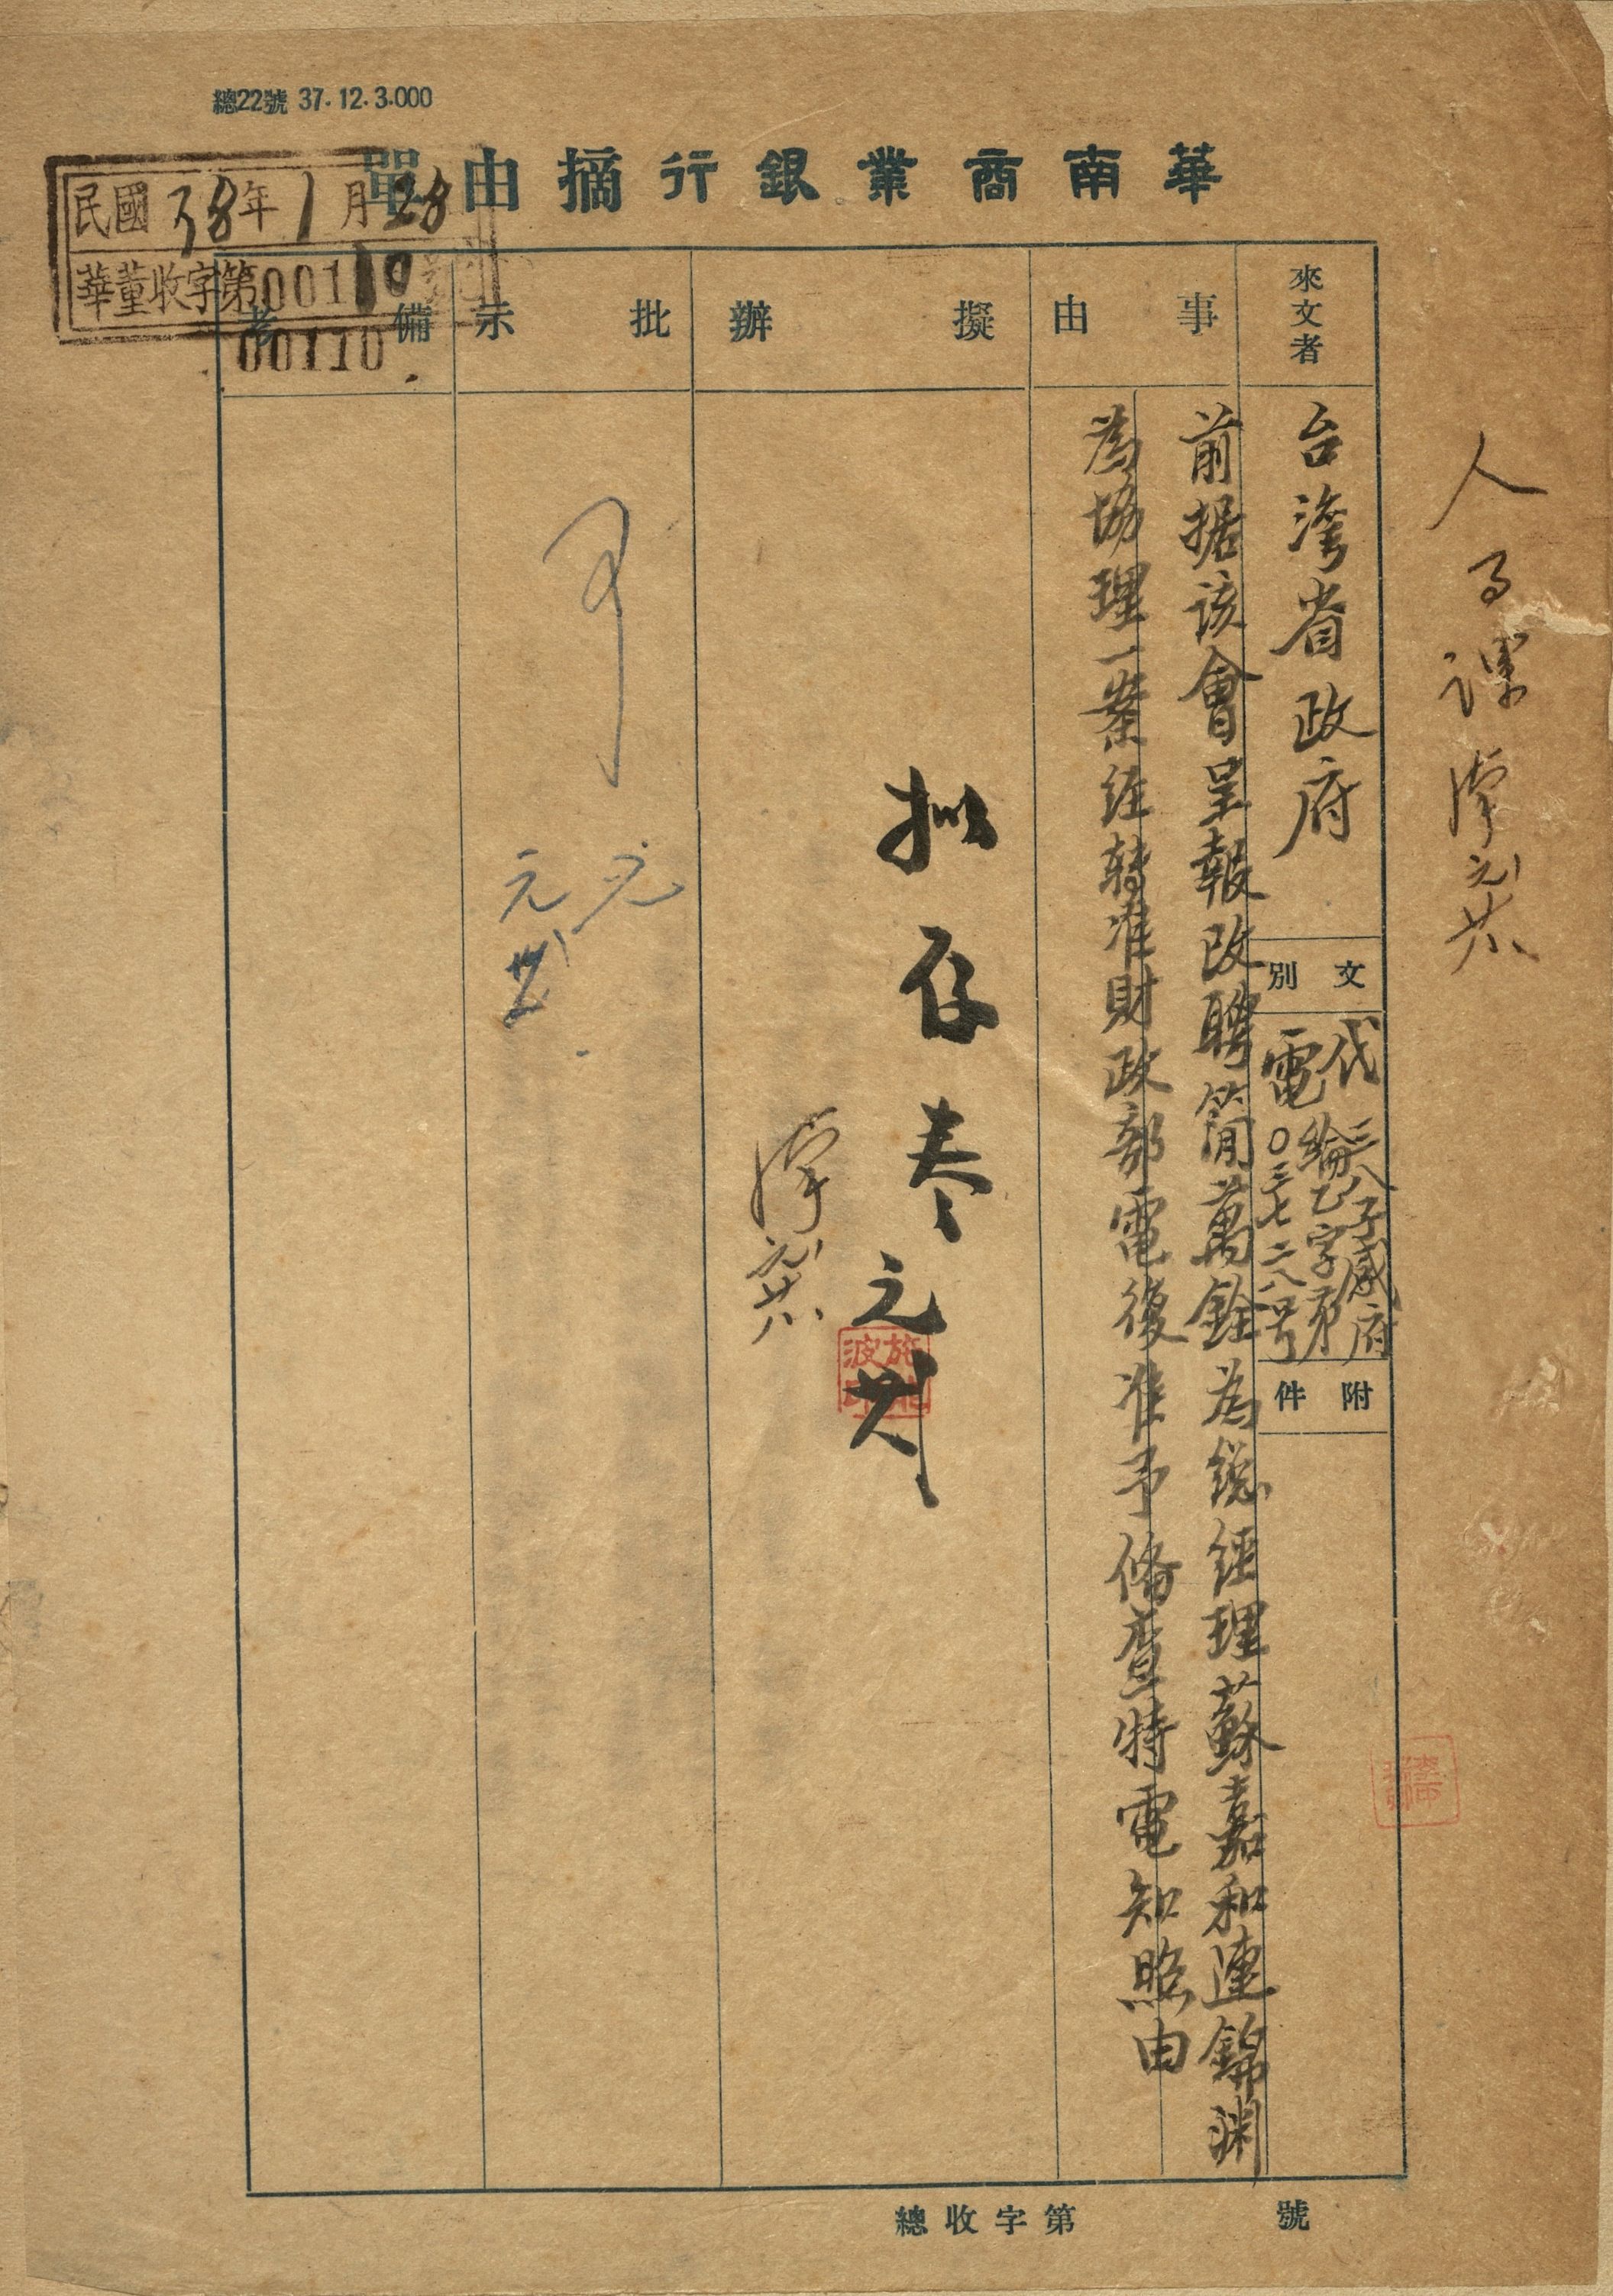 總22號 37.12.3.000
華南商業銀行摘由單
民國38年1月28
華董收字第00110號
00110
人事課
來文者
台灣省政府
文別
代電
三八子咸府
綸乙字第
〇三七二八号
附件
事由
前据該會呈報改聘簡萬銓為總經理蘇嘉和連錦渊
為協理一案経轉准財政部電復准予備查特電知照由
擬辦
拟存卷
元廿八
批示
元
備考
總收字第 號